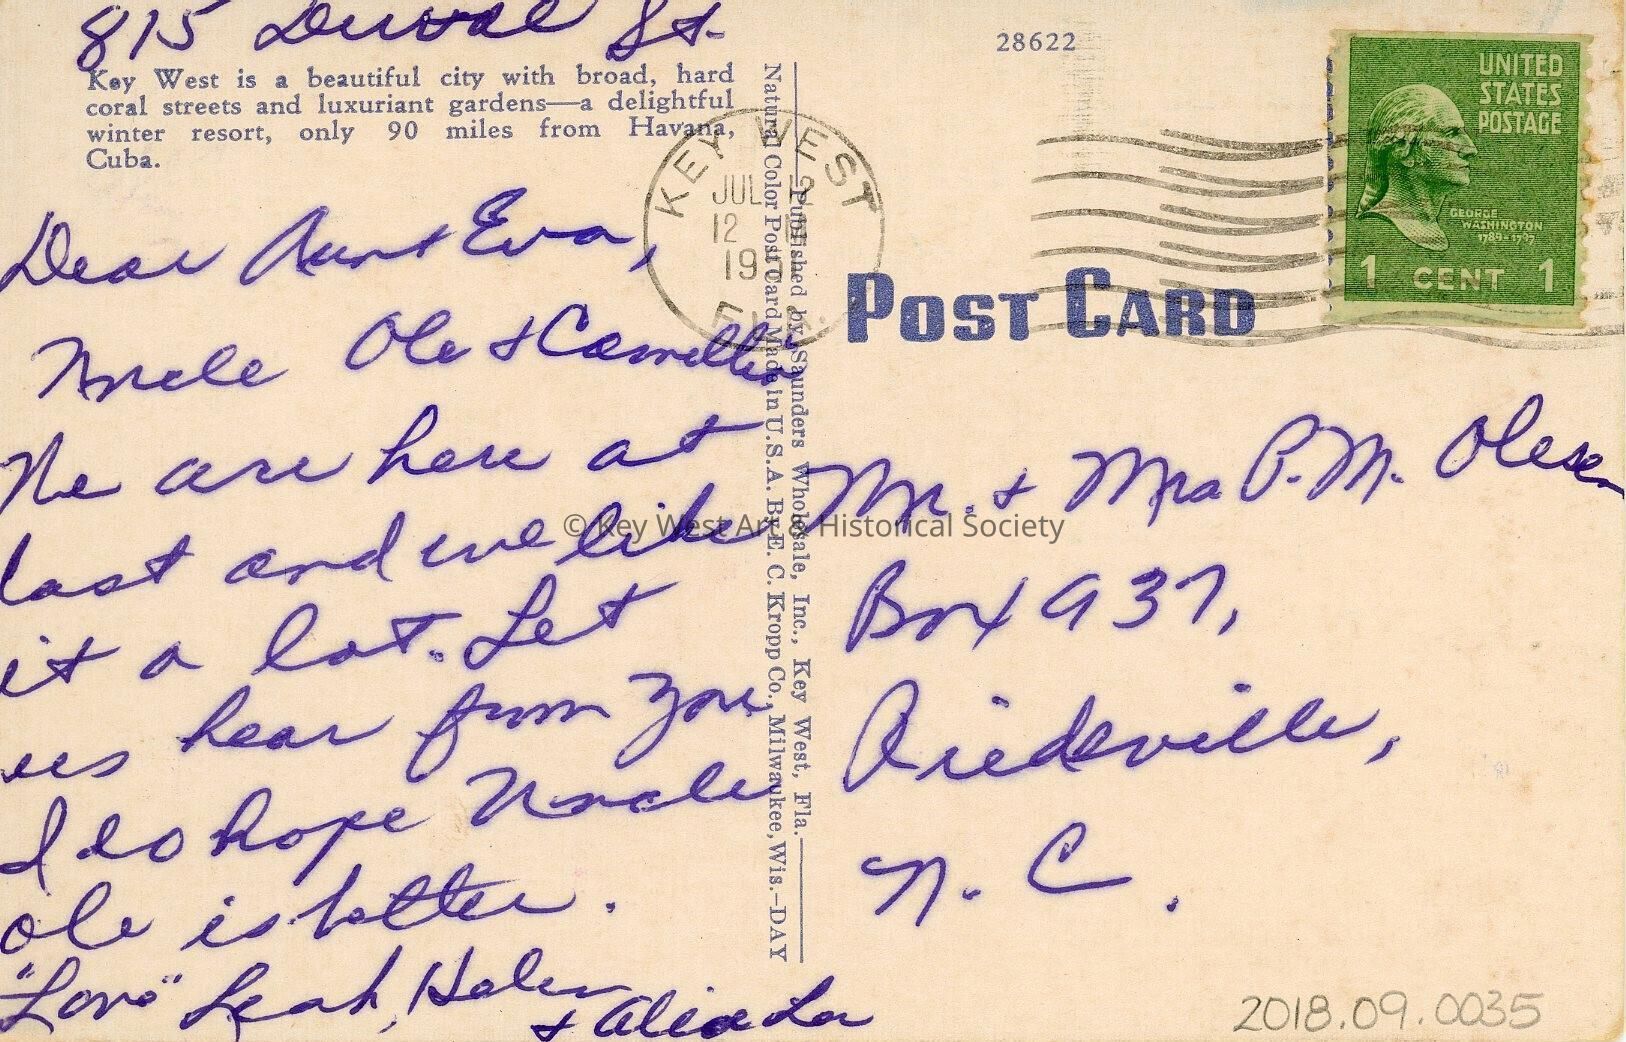 815 Duval St.
Key West is a beautiful city with broad, hard
coral streets and luxuriant gardens—a delightful
winter resort, only 90 miles from Havana,
Cuba.
Dear Aunt Eva,
Uncle Ole + Camellia
We are here at
last and we like
it a lot. Let
us hear from you
I do hope Uncle
Ole is better.
"Love" Leah, Helen
+
Natural Color Post Card Made in U.S.A. By E. C. Kropp Co., Milwaukee, Wis.—DAY
Published by Saunders Wholesale, Inc., Key West, Fla.
28622
KEY WEST
JUL 12
12
19
FLA.
UNITED
STATES
POSTAGE
GEORGE
WASHINGTON
1789-1797
1 CENT 1
POST CARD
Mr. + Mrs P. M. Olesen
Box 937,
Riedsville,
N. C.
© Key West Art & Historical Society
2018.09.0035